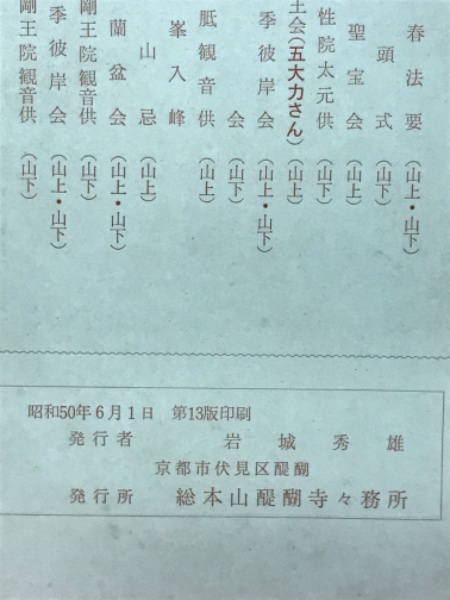 春法要（山上・山下）
頭式（山下）
聖宝会（山上）
性院太元供（山下）
王会（五大力さん）（山上）
季彼岸会（山上・山下）
会（山下）
胝観音供（山上）
峯入峰
山忌（山上）
蘭盆会（山上・山下）
剛王院観音供（山下）
季彼岸会（山上・山下）
剛王院観音供（山下）
昭和50年6月1日　第13版印刷
発行者　岩城秀雄
京都市伏見区醍醐
発行所　総本山醍醐寺々務所